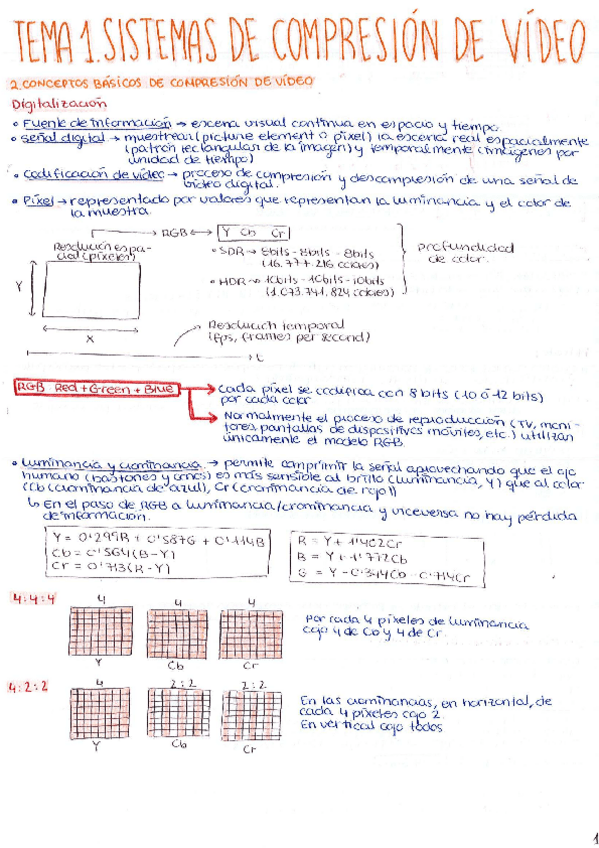 TEMA 1. SISTEMAS DE COMPRESIÓN DE VÍDEO
2. CONCEPTOS BÁSICOS DE COMPRESIÓN DE VÍDEO
Digitalización
• Fuente de información → escena visual continua en espacio y tiempo.
• Señal digital → muestrear (picture element o pixel) la escena real espacialmente
(patrón rectangular de la imagen) y temporalmente (imágenes por
unidad de tiempo)
• Codificación de vídeo → proceso de compresión y descompresión de una señal de
vídeo digital.
• Píxel → representado por valores que representan la luminancia y el color de
la muestra.
→ RGB ↔ Y Cb Cr
Resolución espa-
cial (píxeles)
Y
X
• SDR → 8bits - 8bits - 8bits
(16.777.216 colores)
• HDR → 10bits - 10bits - 10bits
(1.073.741.824 colores)
profundidad
de color.
Resolución temporal
(fps, frames per second)
t
RGB Red + Green + Blue
→ Cada píxel se codifica con 8 bits (10 ó 12 bits)
por cada color
→ Normalmente el proceso de reproducción (TV, moni-
tores, pantallas de dispositivos móviles, etc.) utilizan
únicamente el modelo RGB.
• Luminancia y crominancia → permite comprimir la señal aprovechando que el ojo
humano (bastones y conos) es más sensible al brillo (luminancia, Y) que al color
(Cb (crominancia de azul), Cr (crominancia de rojo))
↳ En el paso de RGB a luminancia/crominancia y viceversa no hay pérdida
de información.
Y = 0'299R + 0'587G + 0'114B
Cb = 0'564(B-Y)
Cr = 0'713(R-Y)
R = Y + 1'402Cr
B = Y + 1'772Cb
G = Y - 0'344Cb - 0'714Cr
4:4:4
4 4 4
Y Cb Cr
Por cada 4 píxeles de luminancia
cojo 4 de Cb y 4 de Cr.
4:2:2
4 2:2 2:2
Y Cb Cr
En las crominancias, en horizontal, de
cada 4 píxeles cojo 2.
En vertical cojo todos
1